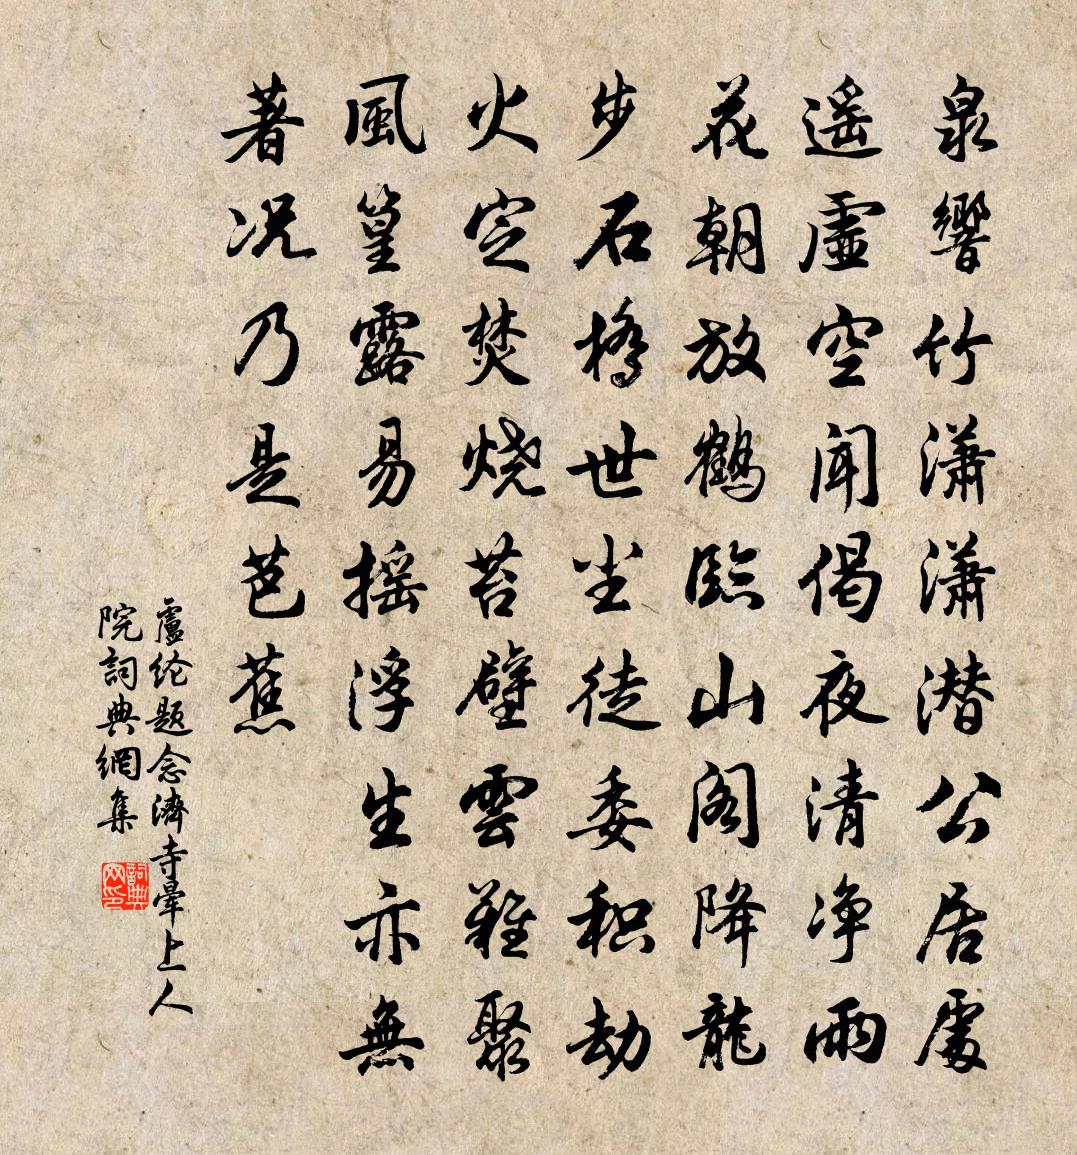 泉響竹瀟瀟潜公居處
遥虛空聞偈夜清净雨
花朝放鶴臨山阁降龍
步石橋世尘徒委积劫
火定焚烧苔壁雲難聚
風篁露易摇浮生亦無
著况乃是芭蕉
盧纶题念濟寺暈上人
院詞典網集
詞典网印